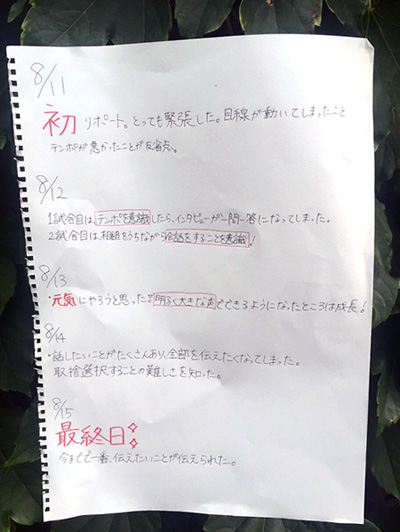 8/11
初リポート。とっても緊張した。目線が動いてしまったこと
テンポが悪かったことが反省点。
8/12
1試合目は、テンポを意識したら、インタビューが一問一答になってしまった。
2試合目は、相槌をうちながら会話をすることを意識!
8/13
・元気にやろうと思ったので明るく大きな声でできるようになったところは成長!
8/14
・話したいことがたくさんあり、全部を伝えたくなってしまった。
取捨選択することの難しさを知った。
8/15
最終日
今までで一番、伝えたいことが伝えられた。